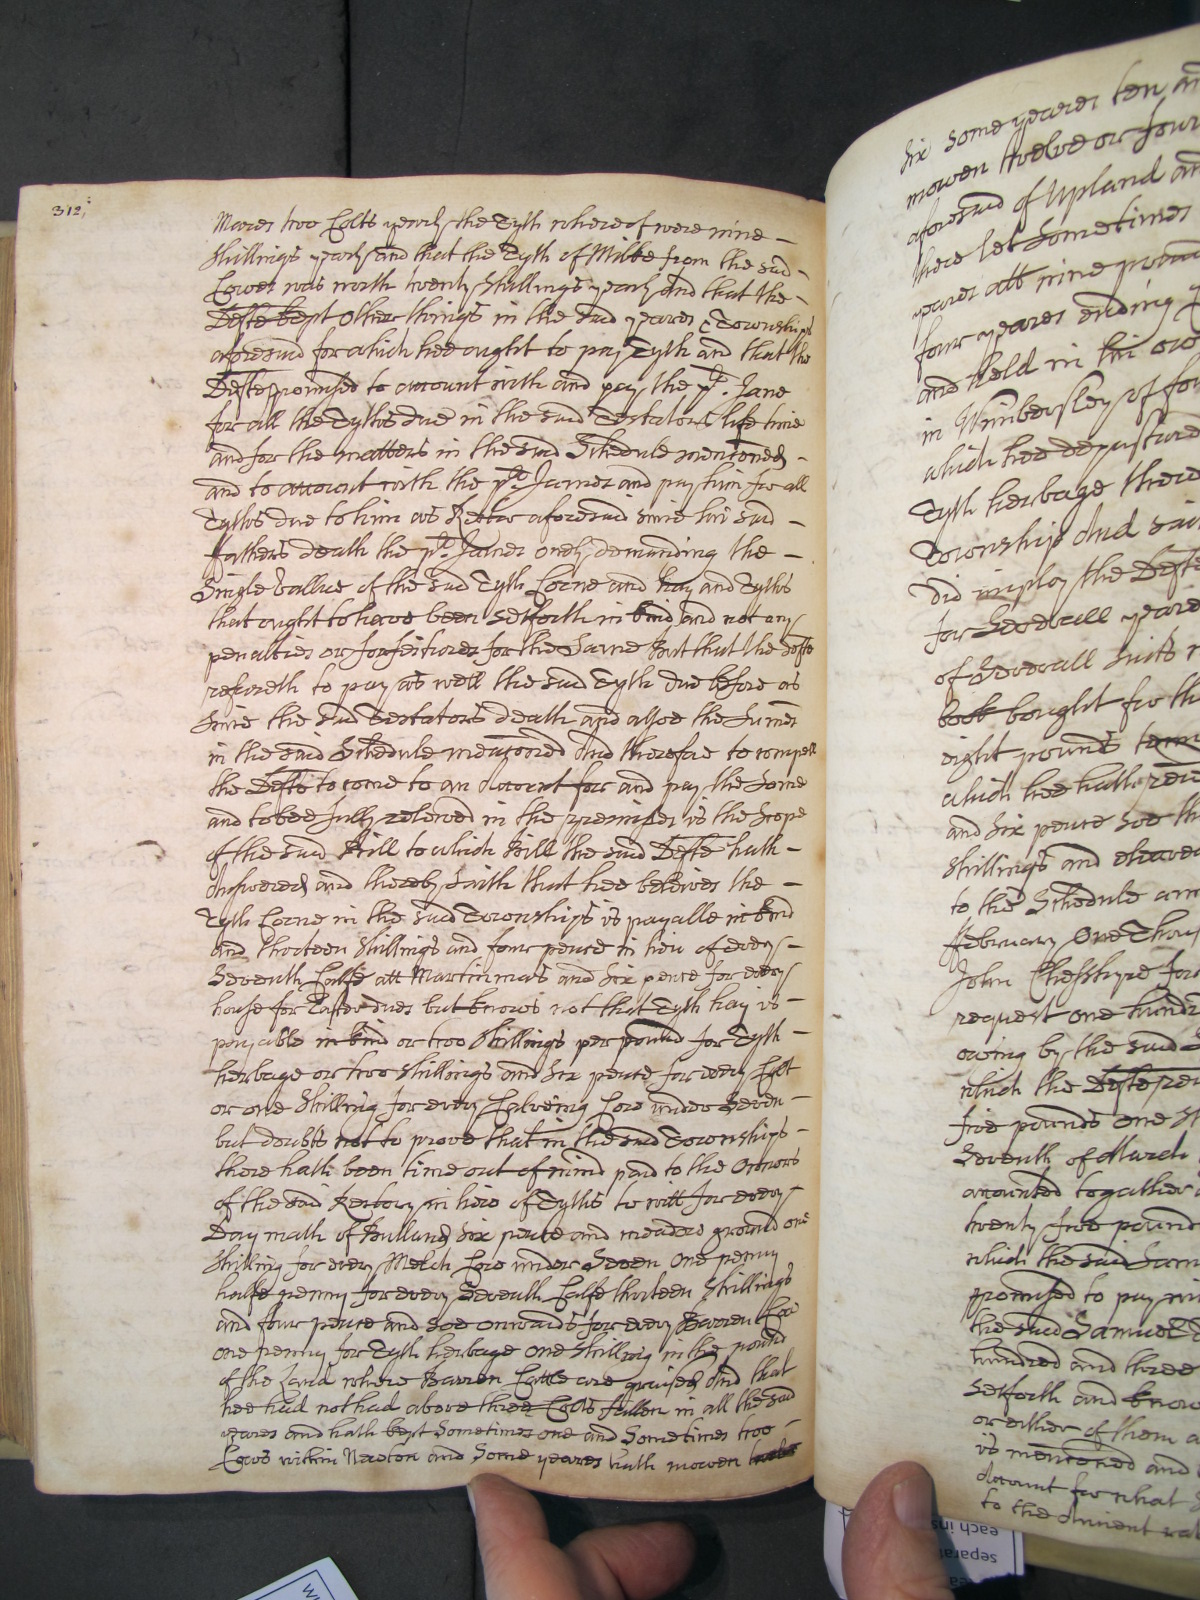 312
Mares two Colts yearly the Tyth whereof were nine
Shillings yearly and that the Tyth of Milke from the said
Cowes was worth twenty Shillings yearly and that the
Defte kept other things in the said yeares & Townships
aforesaid for which hee ought to pay Tyth and that the
Defte promised to account with and pay the pt. Jane
for all the Tythes due in the said Testators life time
and for the matters in the said Schedule menconed
and to account with the pt. James and pay him for all
Tythes due to him as Rector aforesaid since his said
ffathers death the pt. James onely demanding the
Single vallue of the said Tyth Corne and hay and Tythes
that ought to have been Setforth in kind and not any
penalties or forfeitures for the Same But that the Defte
refuseth to pay as well the said Tyth due before as
Since the said Testators death and alsoe the Summes
in the said Schedule menconed And therefore to compell
the Defte to come to an Account for and pay the Same
and to bee fully releived in the premisses is the Scope
of the said Bill to which Bill the said Defte hath
Answered and thereby Saith that hee beleives the
Tyth Corne in the said Townships is payable in kind
and thirteen Shillings and four pence in lieu of every
Seventh Calfe att Martinmas and Six pence for every
house for Easter dues but knows not that Tyth hay is
payable in kind or two Shillings per pound for Tyth
herbage or two Shillings and Six pence for every Colt
or one Shilling for every Calveing Cow under Seven
but doubts not to prove that in the said Townships
there hath been time out of mind paid to the Owners
of the said Rectory in liew of Tythes to witt for every
Day math of Upland Six pence and meadow ground one
Shilling for every Melch Cow under Seven One penny
halfe penny for every Seventh Calfe thirteen Shillings
and four pence and soe onwards for every Barren Cow
one penny for Tyth herbage One Shilling in the pound
of the Land where Barren Cattle are graized And that
hee had not had above three Colts fallen in all the said
yeares and hath kept Sometimes one and Sometimes two
Cows within Newton and Some yeares hath mowen
Six some yeares ten an
mowen twelve or four
aforesaid of Upland an
there let Sometimes
yeares att nine pound
four yeares ending
and held in his ow
in Wimbersley of fou
which hee depastured
Tyth herbage there
Township And sai
did imploy the Defte
for Severall yeares
of Severall suits
book bought for th
eight pounds
which hee hath
and Six pence soe th
Shillings and eleaven
to the Schedule ann
ffebruary One Thous
John Chesshyre for
request one hundr
owing by the said
which the Defte
five pounds one
Seventh of March
amounted togather
twenty five pound
which the said Sam
promised to pay
the said Samuel
hundred and three
Setforth and know
or either of them a
is menconed and
Account for what
to the Ancient
separat
each ins